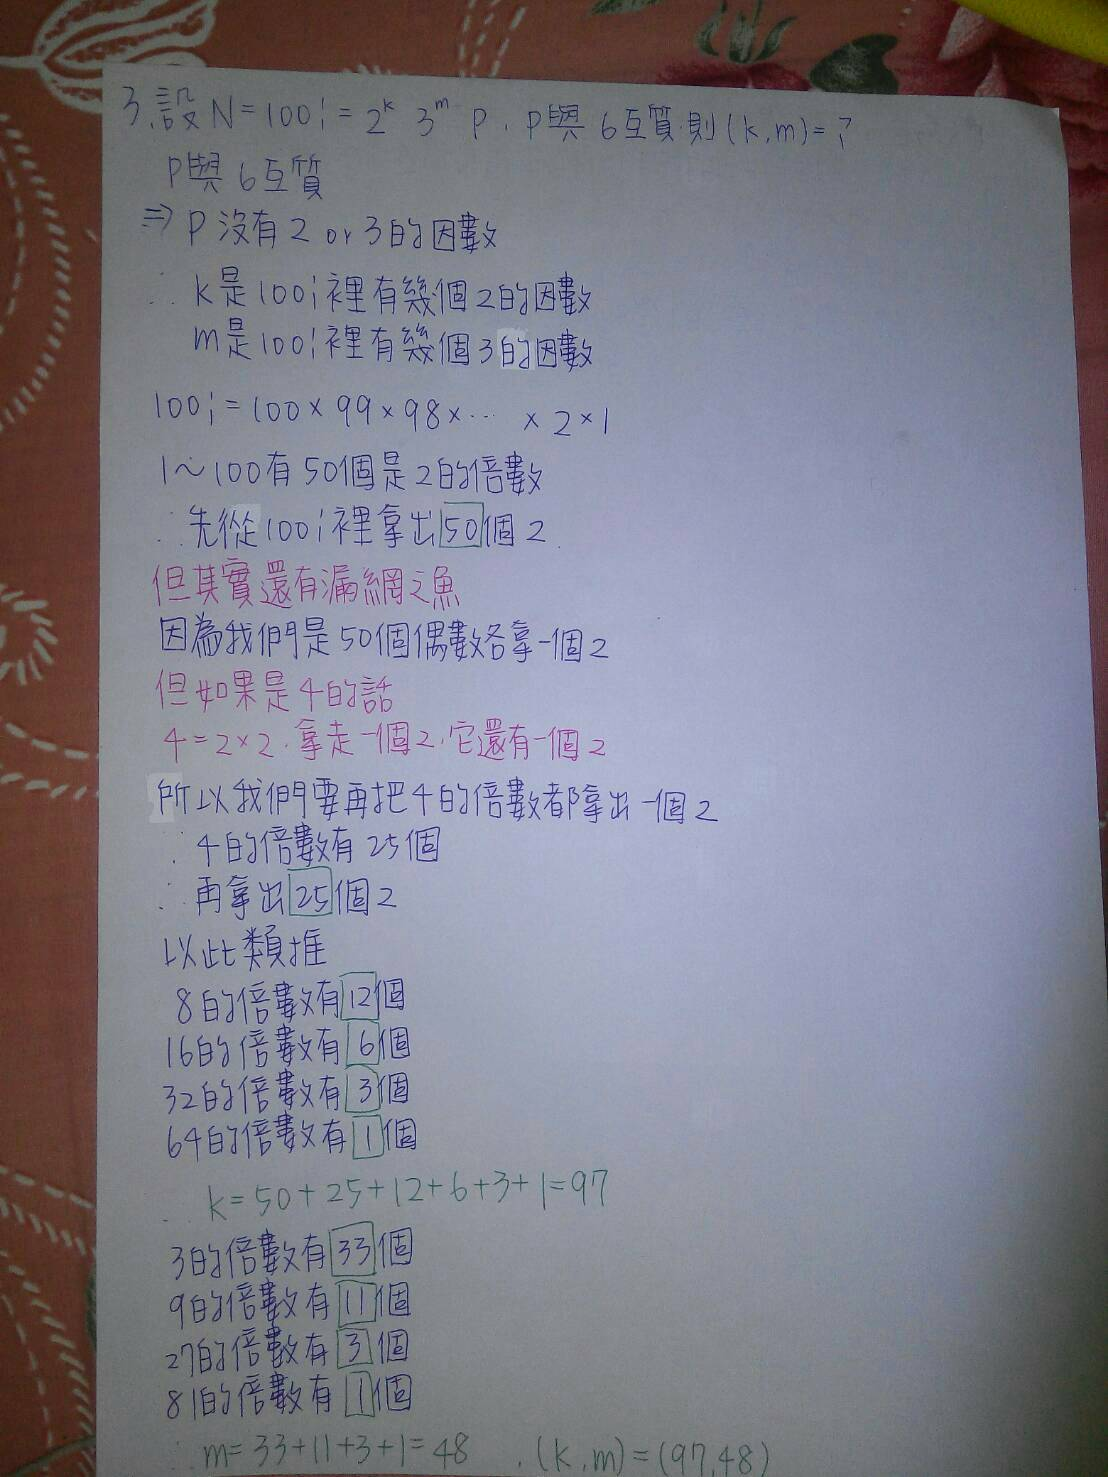 3.設N=100!=2^k 3^m P,P與6互質.則(k,m)=?
P與6互質
⇒P沒有2 or 3的因數
∴k是100!裡有幾個2的因數
m是100!裡有幾個3的因數
100!=100×99×98×…×2×1
1~100有50個是2的倍數
∴先從100!裡拿出50個2
但其實還有漏網之魚
因為我們是50個偶數各拿一個2
但如果是4的話
4=2×2.拿走一個2.它還有一個2
所以我們要再把4的倍數都拿出一個2
∵4的倍數有25個
∴再拿出25個2
以此類推
8的倍數有12個
16的倍數有6個
32的倍數有3個
64的倍數有1個
∴k=50+25+12+6+3+1=97
3的倍數有33個
9的倍數有11個
27的倍數有3個
81的倍數有1個
∴m=33+11+3+1=48 ,(k,m)=(97,48)